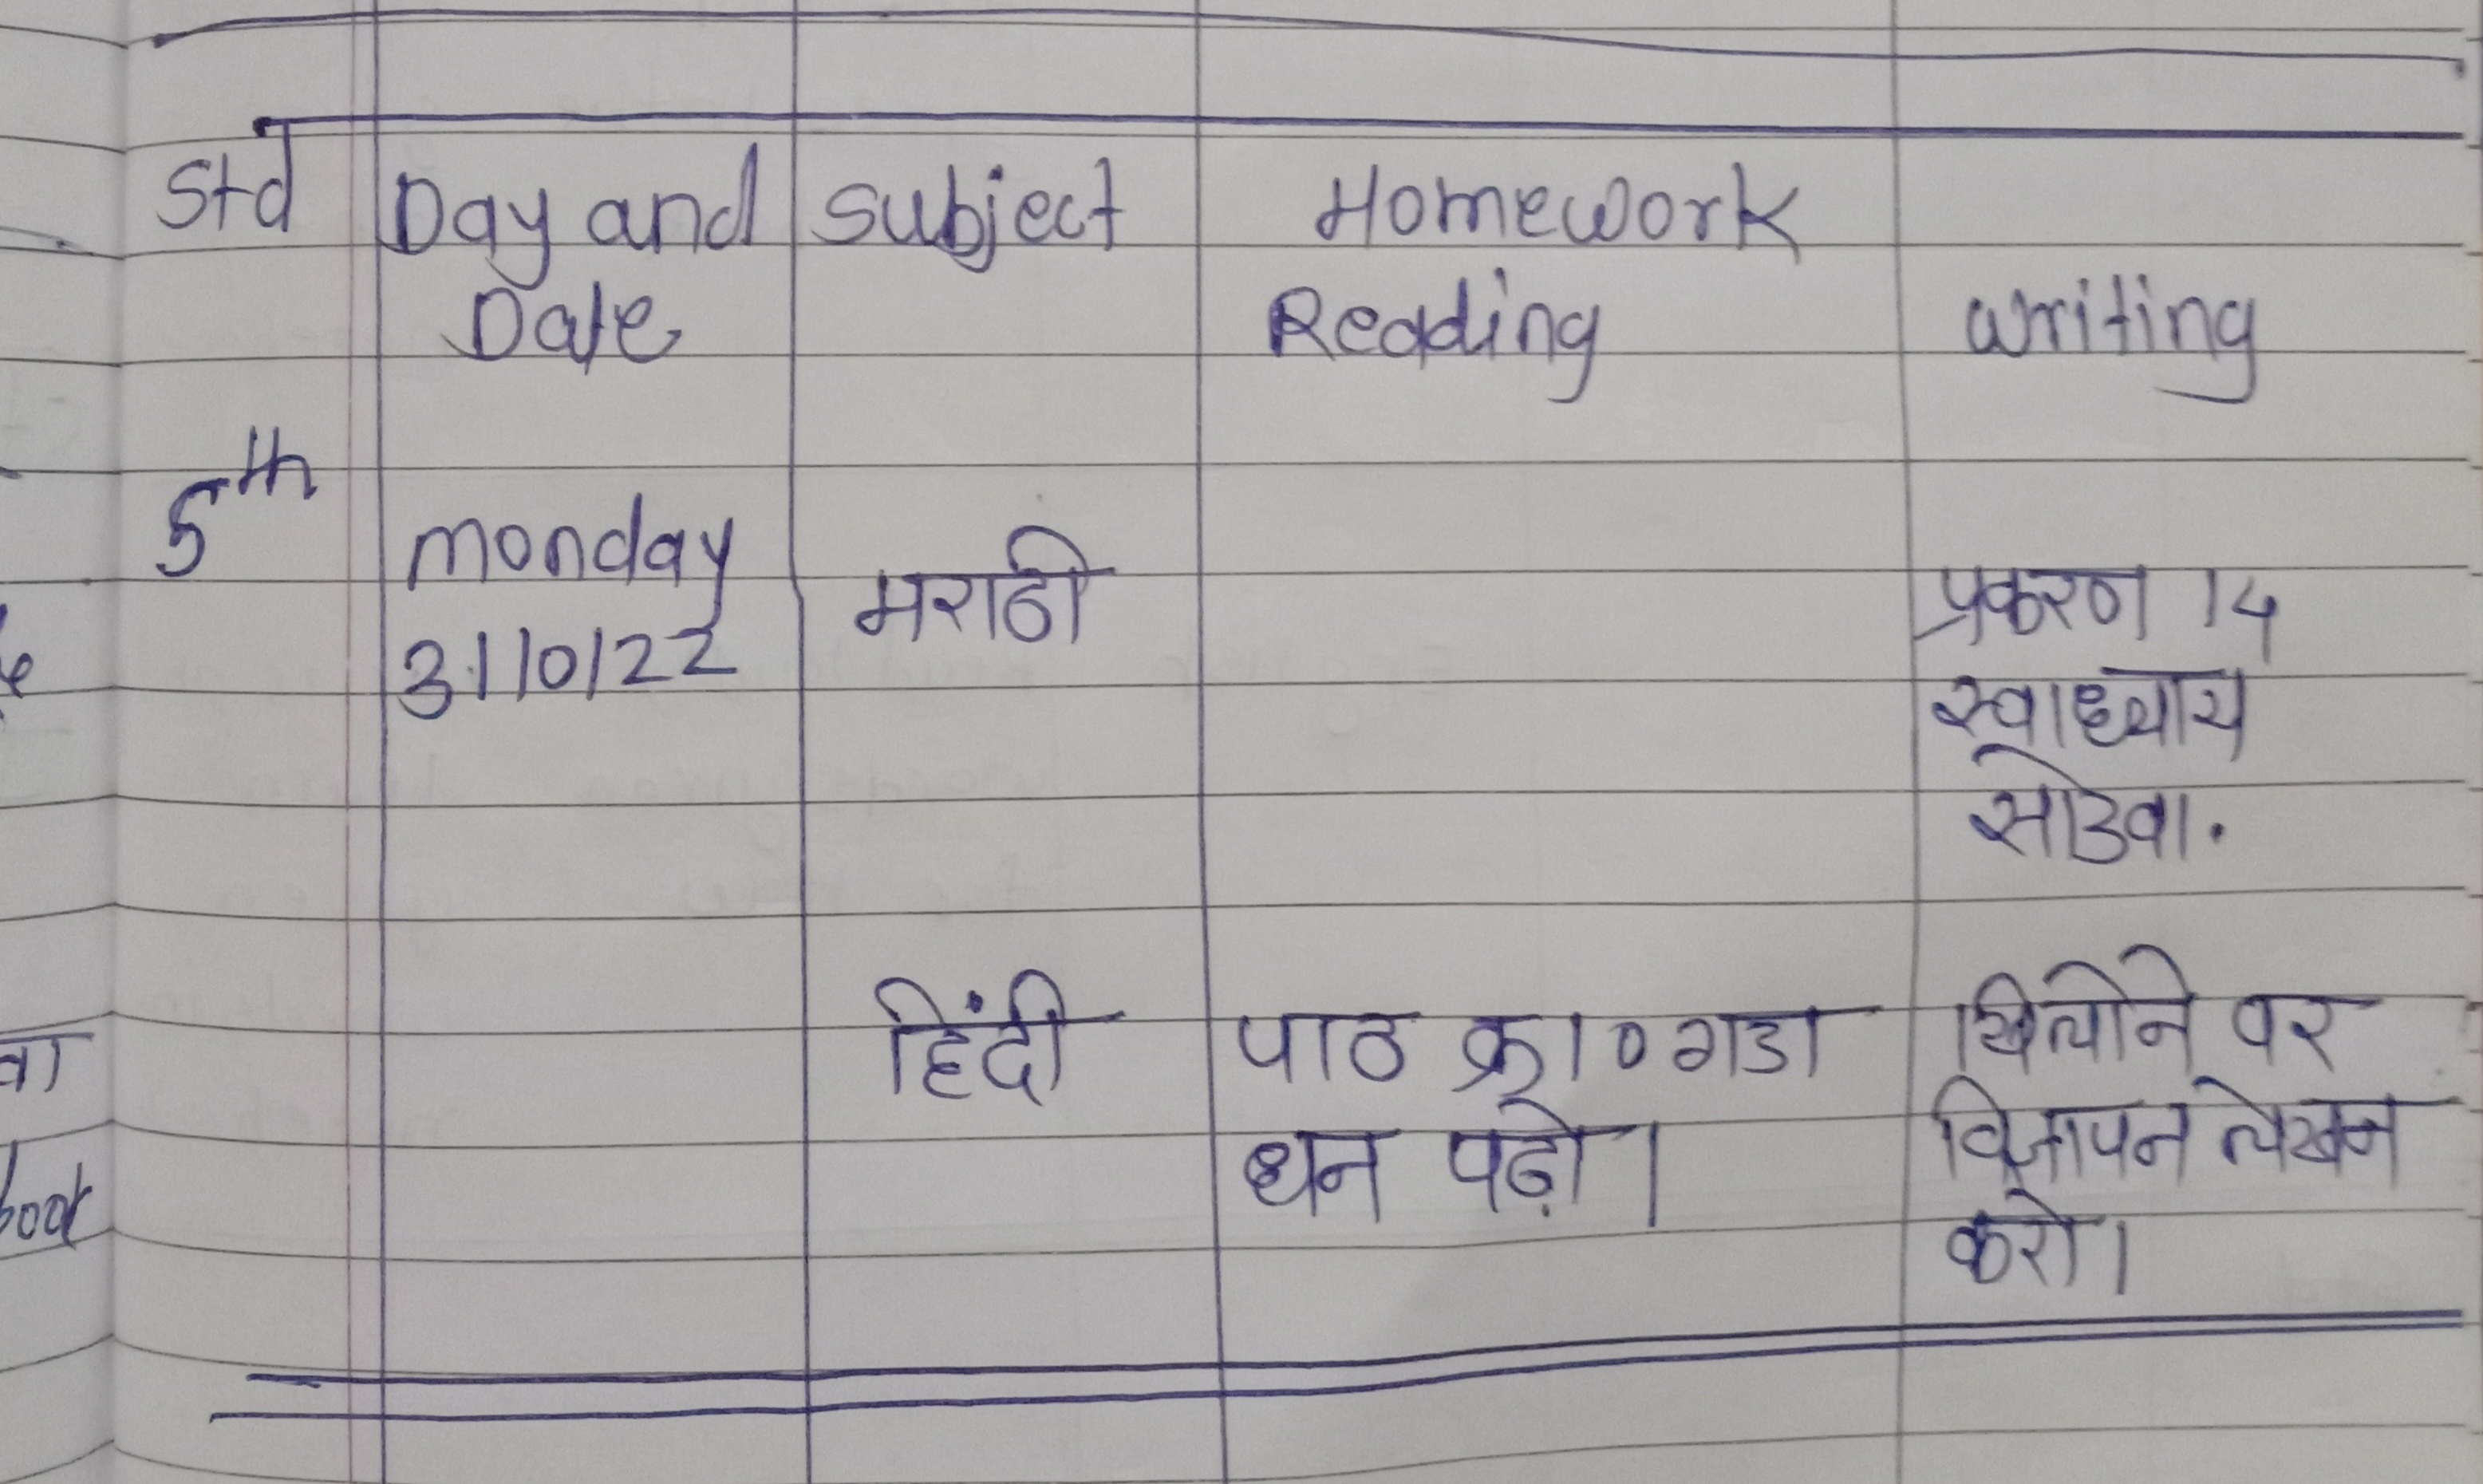 Std Day and subject Homework
Date Reading writing
5th
monday
मराठी प्रकरण 14
3110122
स्वाध्याय
सोडवा.
हिंदी पाठ क्र 10 गडा खिलोने वर
धन पढ़ो। विज्ञापन लेखन
करो।
वा